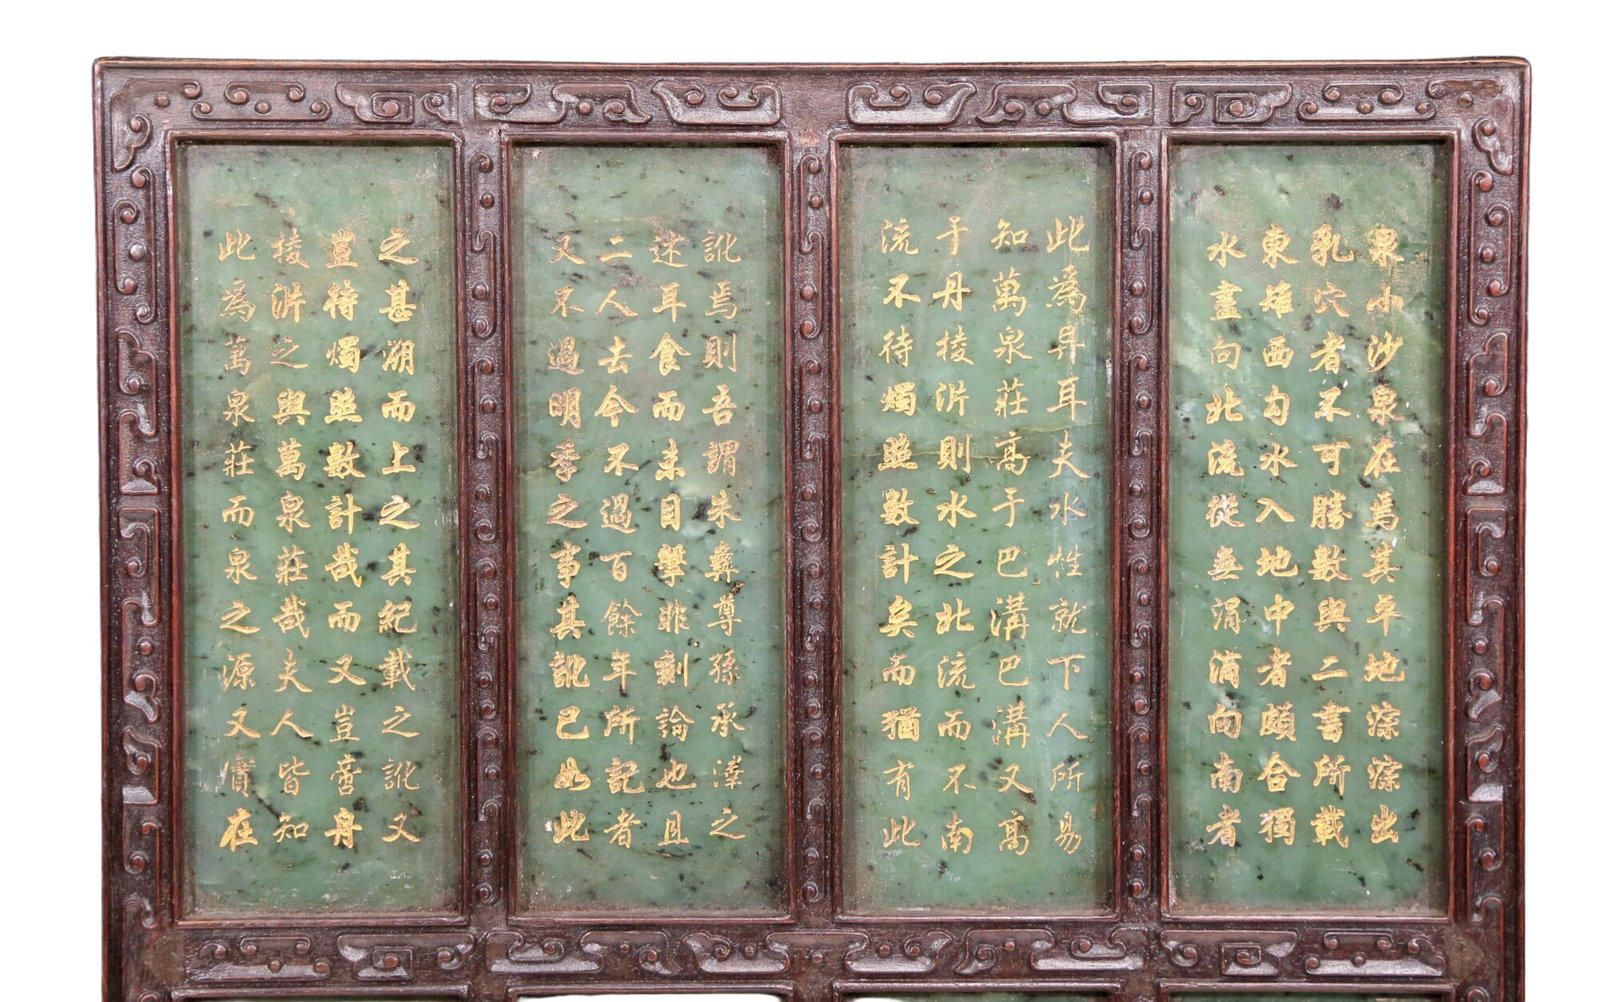 泉小沙泉在焉其平地淙淙出
乳穴者不可勝數與二書所載
東雉西勾水入地中者頗合獨
水盡向北流從無涓滴向南者
此為舁耳夫水性就下人所易
知萬泉莊高于巴溝巴溝又高
于丹棱沜則水之北流而不南
流不待燭照數計矣而猶有此
訛焉則吾謂朱彝尊孫承澤之
述耳食而未目擊非剌論也且
二人去今不過百餘年所記者
又不過明季之事其訛已如此
之甚溯而上之其紀載之訛又
豈待燭照數計哉而又豈啻舟
棱沜之與萬泉莊哉夫人皆知
此為萬泉莊而泉之源又實在